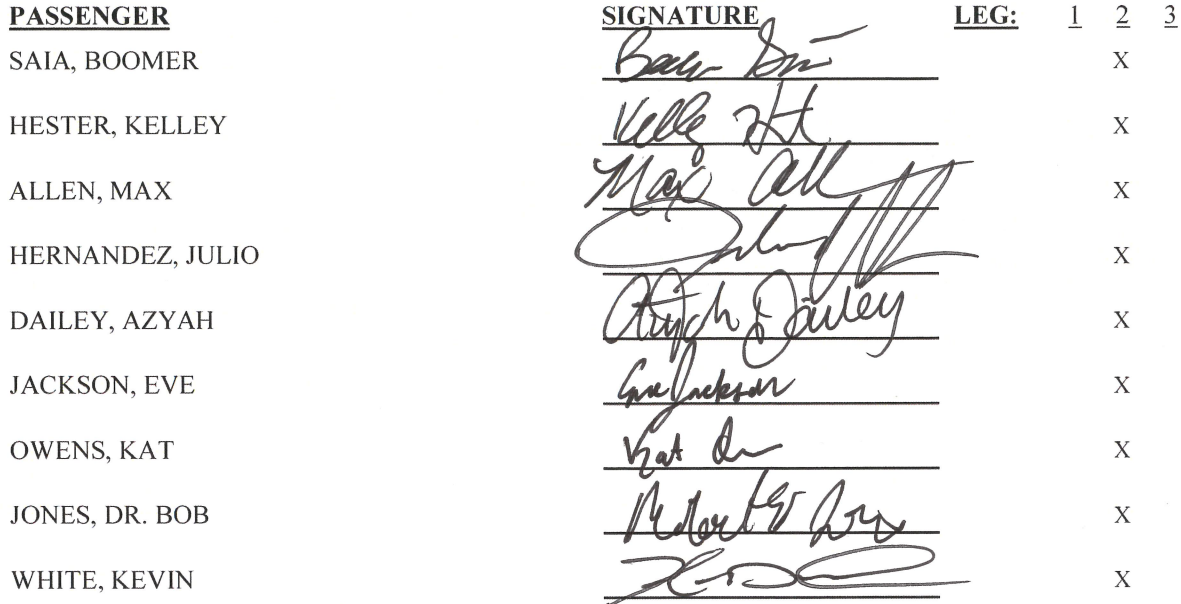 PASSENGER SIGNATURE LEG: 1 2 3
SAIA, BOOMER X
HESTER, KELLEY Kelly X
ALLEN, MAX Max All X
HERNANDEZ, JULIO X
DAILEY, AZYAH Dailey X
JACKSON, EVE Eve Jackson X
OWENS, KAT Kat X
JONES, DR. BOB Robert X
WHITE, KEVIN X